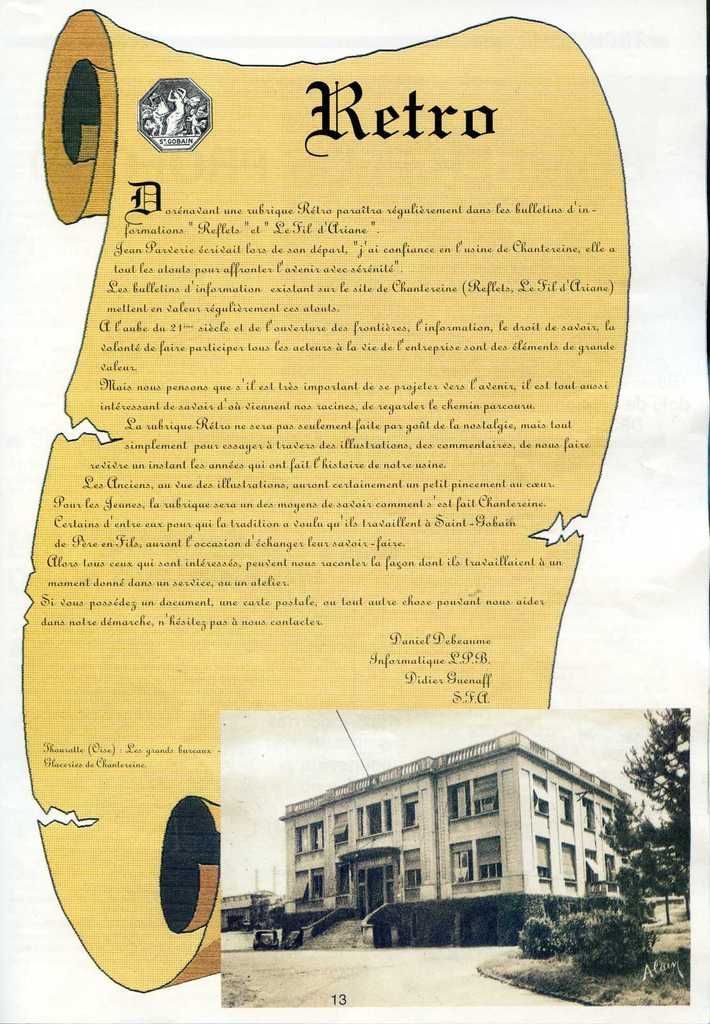 St GOBAIN
Retro
Dorénavant une rubrique Rétro paraîtra régulièrement dans les bulletins d'in-
formations " Reflets " et " Le Fil d'Ariane ".
Jean Parverie écrivait lors de son départ, "j'ai confiance en l'usine de Chantereine, elle a
tout les atouts pour affronter l'avenir avec sérénité".
Les bulletins d'information existant sur le site de Chantereine (Reflets, Le Fil d'Ariane)
mettent en valeur régulièrement ces atouts.
A l'aube du 21ème siècle et de l'ouverture des frontières, l'information, le droit de savoir, la
volonté de faire participer tous les acteurs à la vie de l'entreprise sont des éléments de grande
valeur.
Mais nous pensons que s'il est très important de se projeter vers l'avenir, il est tout aussi
intéressant de savoir d'où viennent nos racines, de regarder le chemin parcouru.
La rubrique Rétro ne sera pas seulement faite par goût de la nostalgie, mais tout
simplement pour essayer à travers des illustrations, des commentaires, de nous faire
revivre un instant les années qui ont fait l'histoire de notre usine.
Les Anciens, au vue des illustrations, auront certainement un petit pincement au cœur.
Pour les Jeunes, la rubrique sera un des moyens de savoir comment s'est fait Chantereine.
Certains d'entre eux pour qui la tradition a voulu qu'ils travaillent à Saint-Gobain
de Père en Fils, auront l'occasion d'échanger leur savoir-faire.
Alors tous ceux qui sont intéressés, peuvent nous raconter la façon dont ils travaillaient à un
moment donné dans un service, ou un atelier.
Si vous possédez un document, une carte postale, ou tout autre chose pouvant nous aider
dans notre démarche, n'hésitez pas à nous contacter.
Daniel Debeaume
Informatique L.P.B.
Didier Guenaff
S.F.A.
Thourotte (Oise) : Les grands bureaux -
Glaceries de Chantereine.
Alain
13